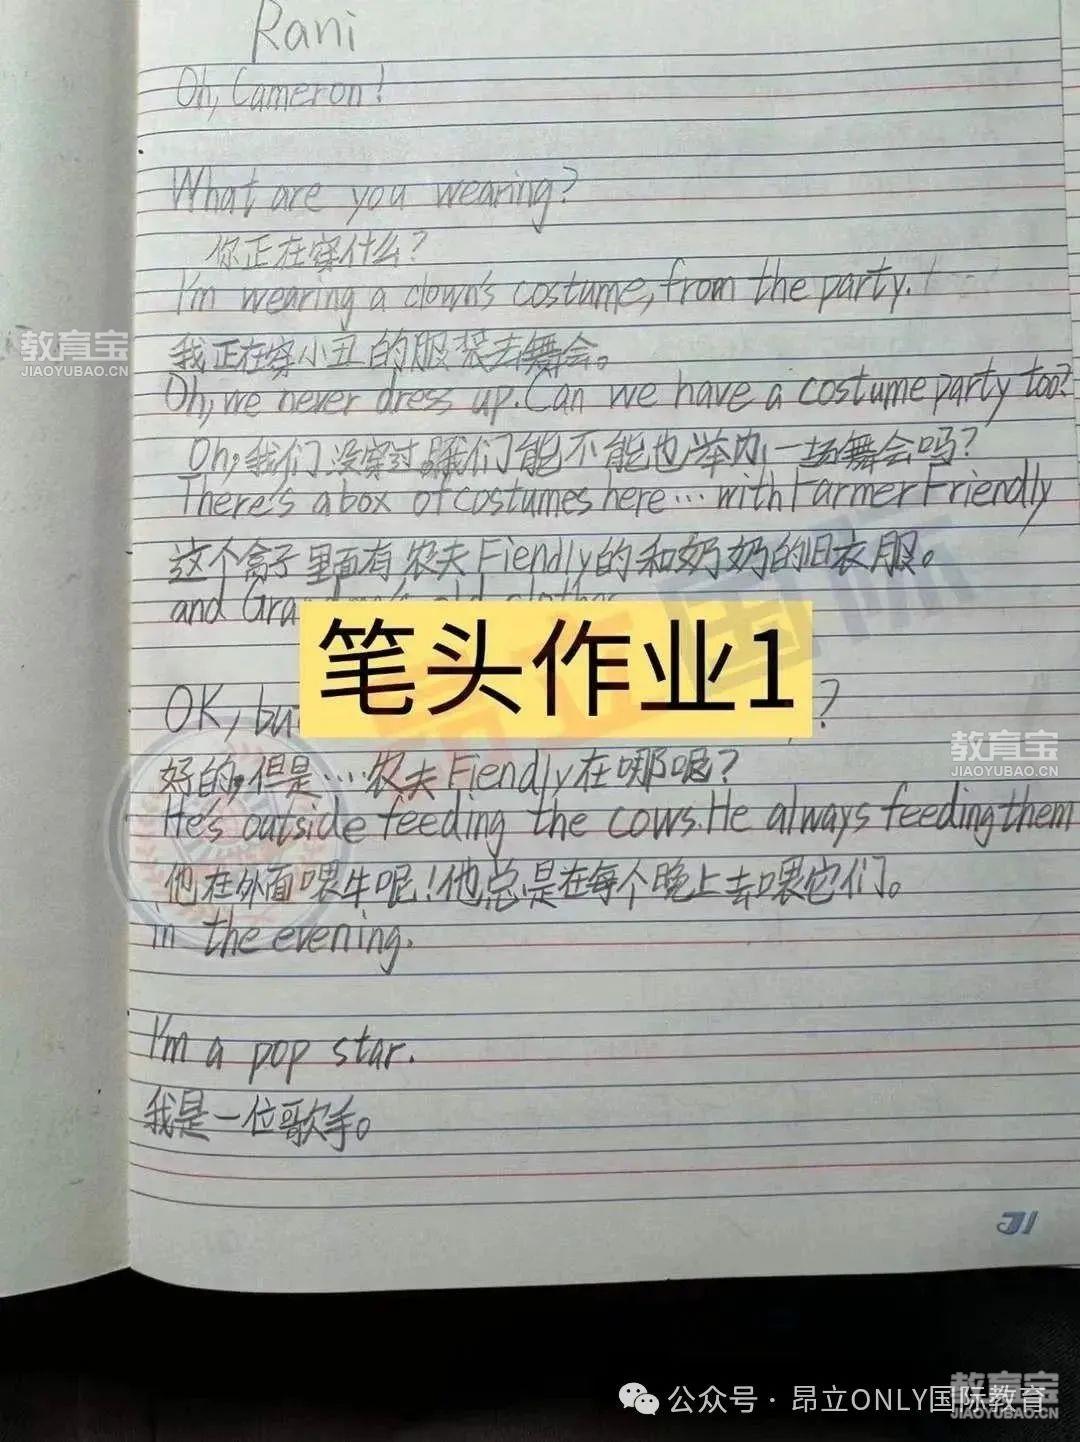 Rani
Oh, Cameron!
What are you wearing?
你正在穿什么?
I'm wearing a clown's costume, from the party.
我正在穿小丑的服装去舞会。
Oh, we never dress up. Can we have a costume party too?
Oh,我们没穿过,我们能不能也举办一场舞会吗?
There's a box of costumes here... with Farmer Friendly
这个盒子里面有农夫Fiendly的和奶奶的旧衣服。
and Grandma's old clothes
笔头作业1
OK, bu ?
好的,但是…农夫Fiendly在哪呢?
He's outside feeding the cows. He always feeding them
他在外面喂牛呢!他总是在每个晚上去喂它们。
in the evening.
I'm a pop star.
我是一位歌手。
教育宝
JIAOYUBAO.CN
教育宝
JIAOYUBAO.CN
公众号·昂立ONLY国际教育
教育宝
JIAOYUBAO.CN